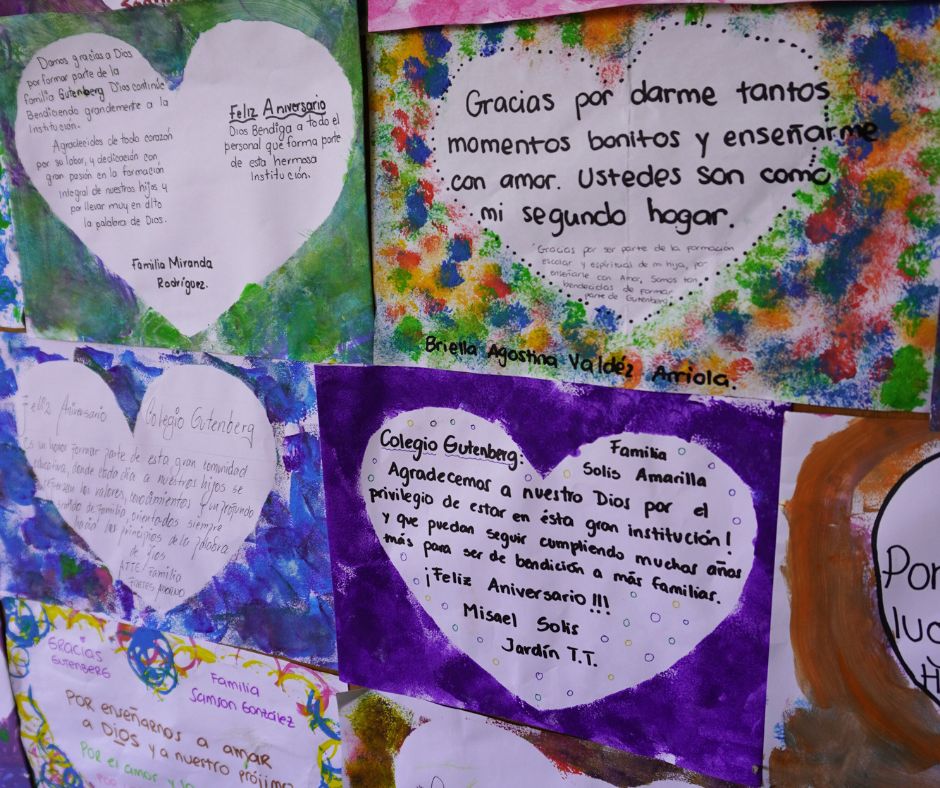 Damos gracias a Dios
por formar parte de la
familia Gutenberg Dios continúe
Bendiciendo grandemente a la
Institución.
Agradecidos de todo corazón
por su labor, y dedicación con
gran pasión en la formación
integral de nuestros hijos y
por llevar muy en alto
la palabra de Dios.
Feliz Aniversario
Dios Bendiga a todo el
personal que forma parte
de esta hermosa
Institución.
Familia Miranda
Rodríguez.
Gracias por darme tantos
momentos bonitos y enseñarme
con amor. Ustedes son como
mi segundo hogar.
Gracias por ser parte de la formación
escolar y espiritual de mi hija, por
enseñarle con Amor, Somos
bendecidos de formar
parte de Gutenberg
Briella Agostina Valdéz Arriola.
Feliz Aniversario Colegio Gutenberg
Es un honor formar parte de esta gran comunidad
educativa, donde cada día a nuestros hijos se
refuerzan los valores, conocimientos y un profundo
sentido de familia, orientados siempre
hacia los principios de la palabra
de Dios
ATTE/ Familia
Colegio Gutenberg:
Familia
Solis Amarilla
Agradecemos a nuestro Dios por el
privilegio de estar en ésta gran institución!
y que puedan seguir cumpliendo muchos años
más para ser de bendición a más familias.
¡Feliz Aniversario!!!
Misael Solis
Jardín T.T.
Gracias
Gutenberg
Familia
Samson González
Por enseñarnos a amar
a Dios y a nuestro prójimo
Por el amor y
Por